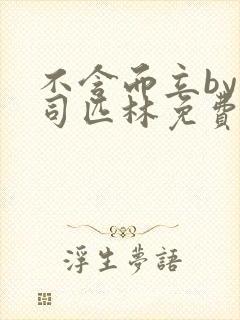 不言而立by
司匹林免費
浮生夢語